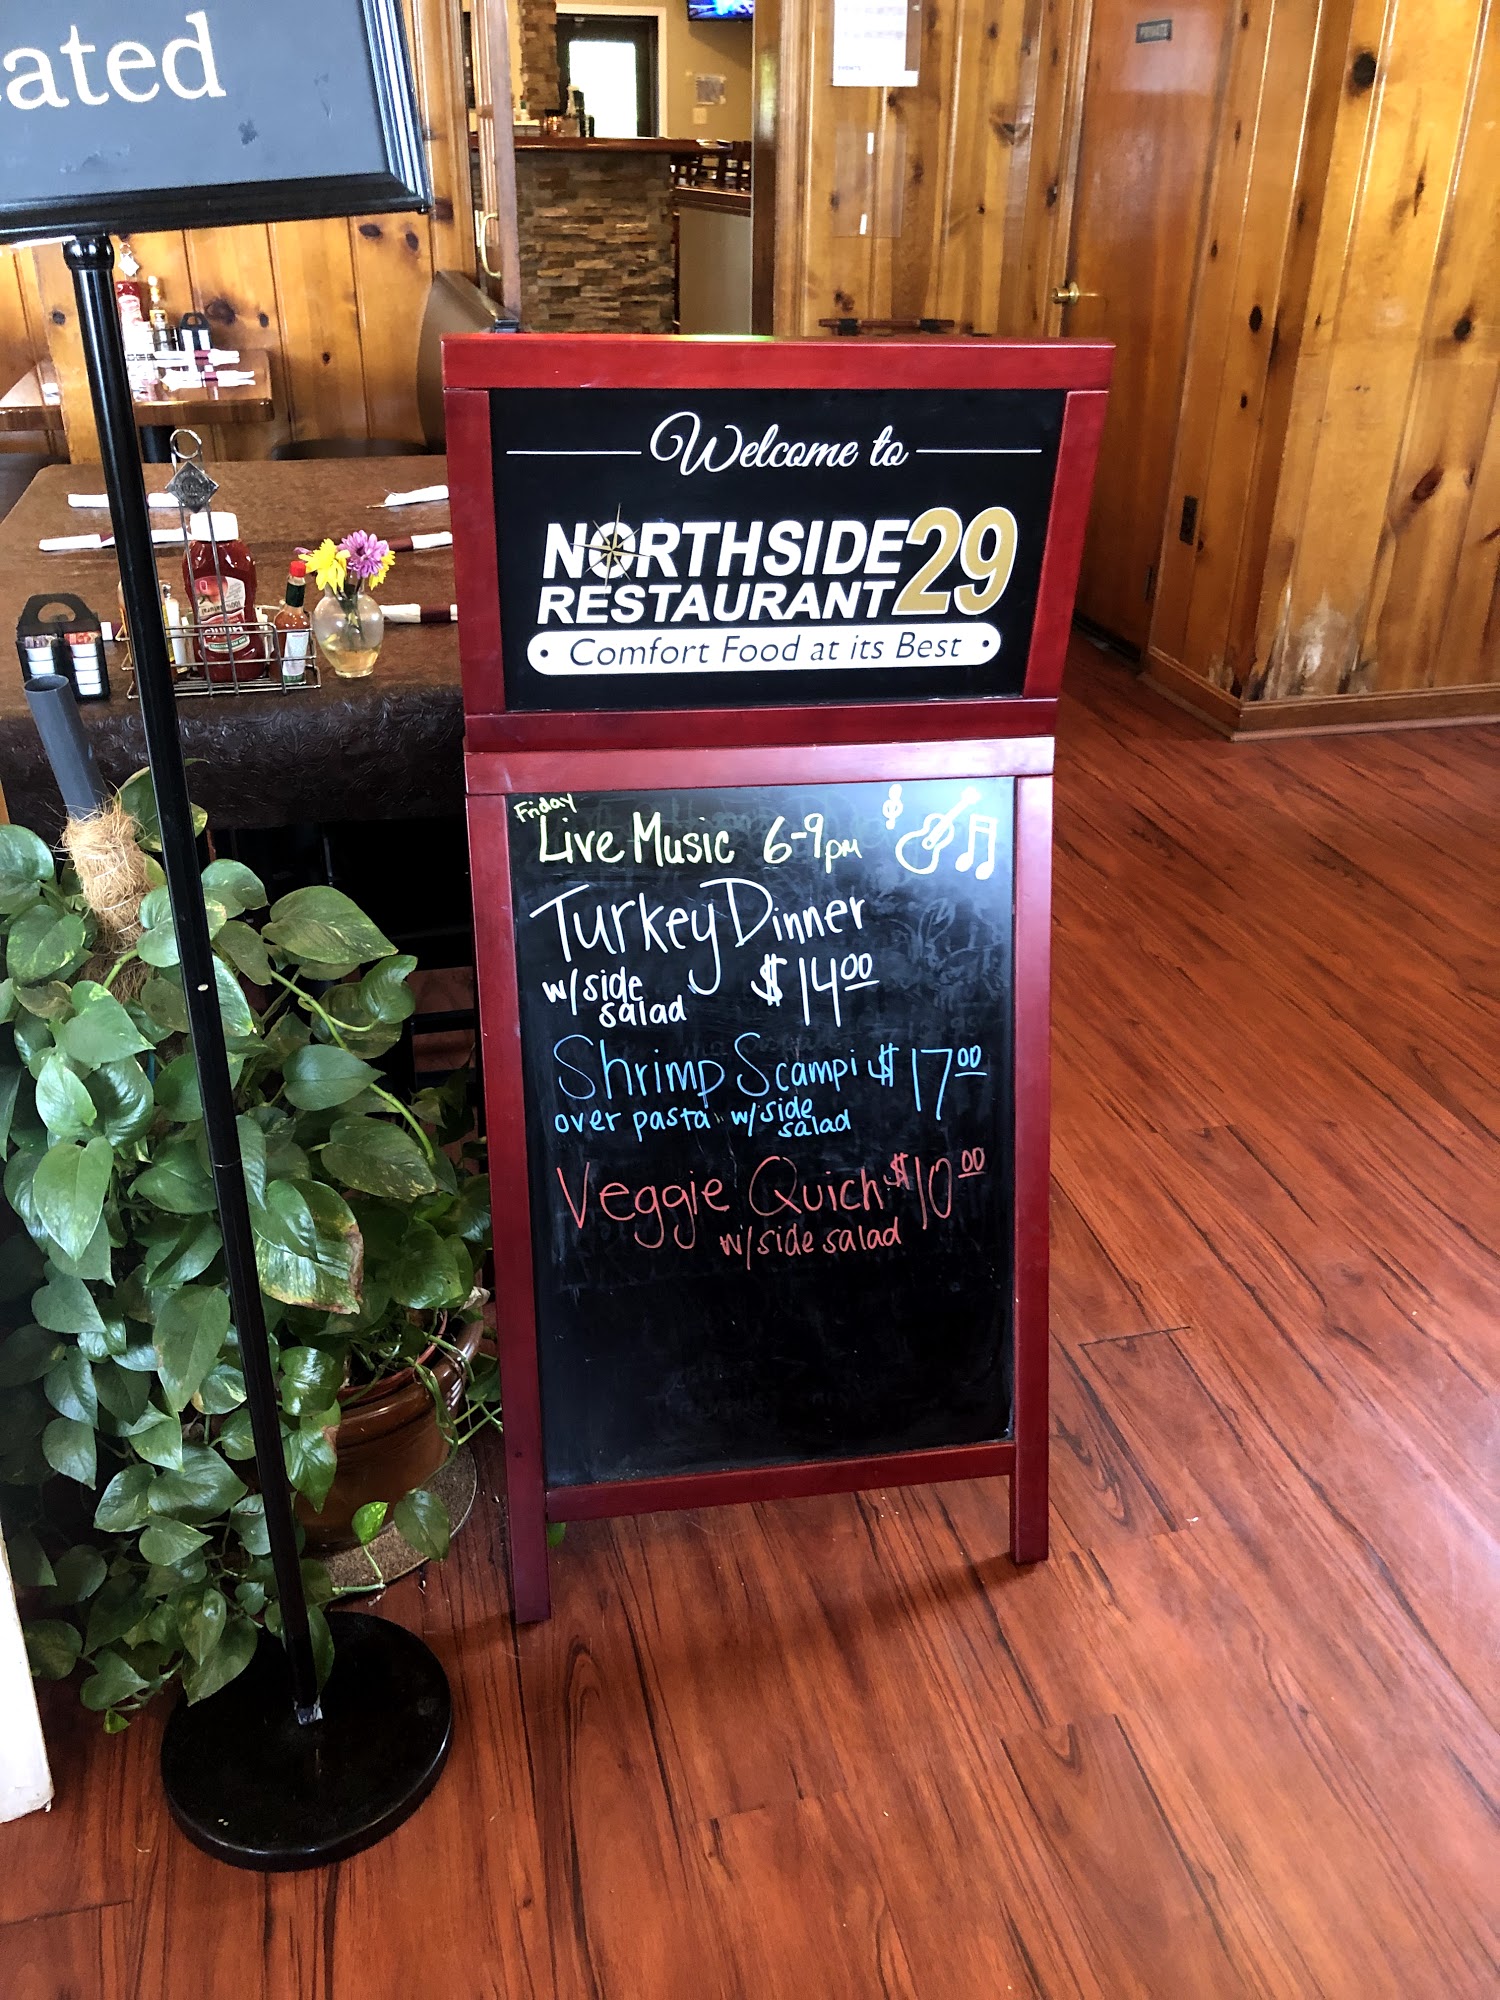 ated
PRIVATE
Welcome to
NORTHSIDE 29
RESTAURANT
Comfort Food at its Best
Friday
Live Music 6-9pm
Turkey Dinner
w/side salad $14.00
Shrimp Scampi $17.00
over pasta w/side salad
Veggie Quich $10.00
w/side salad